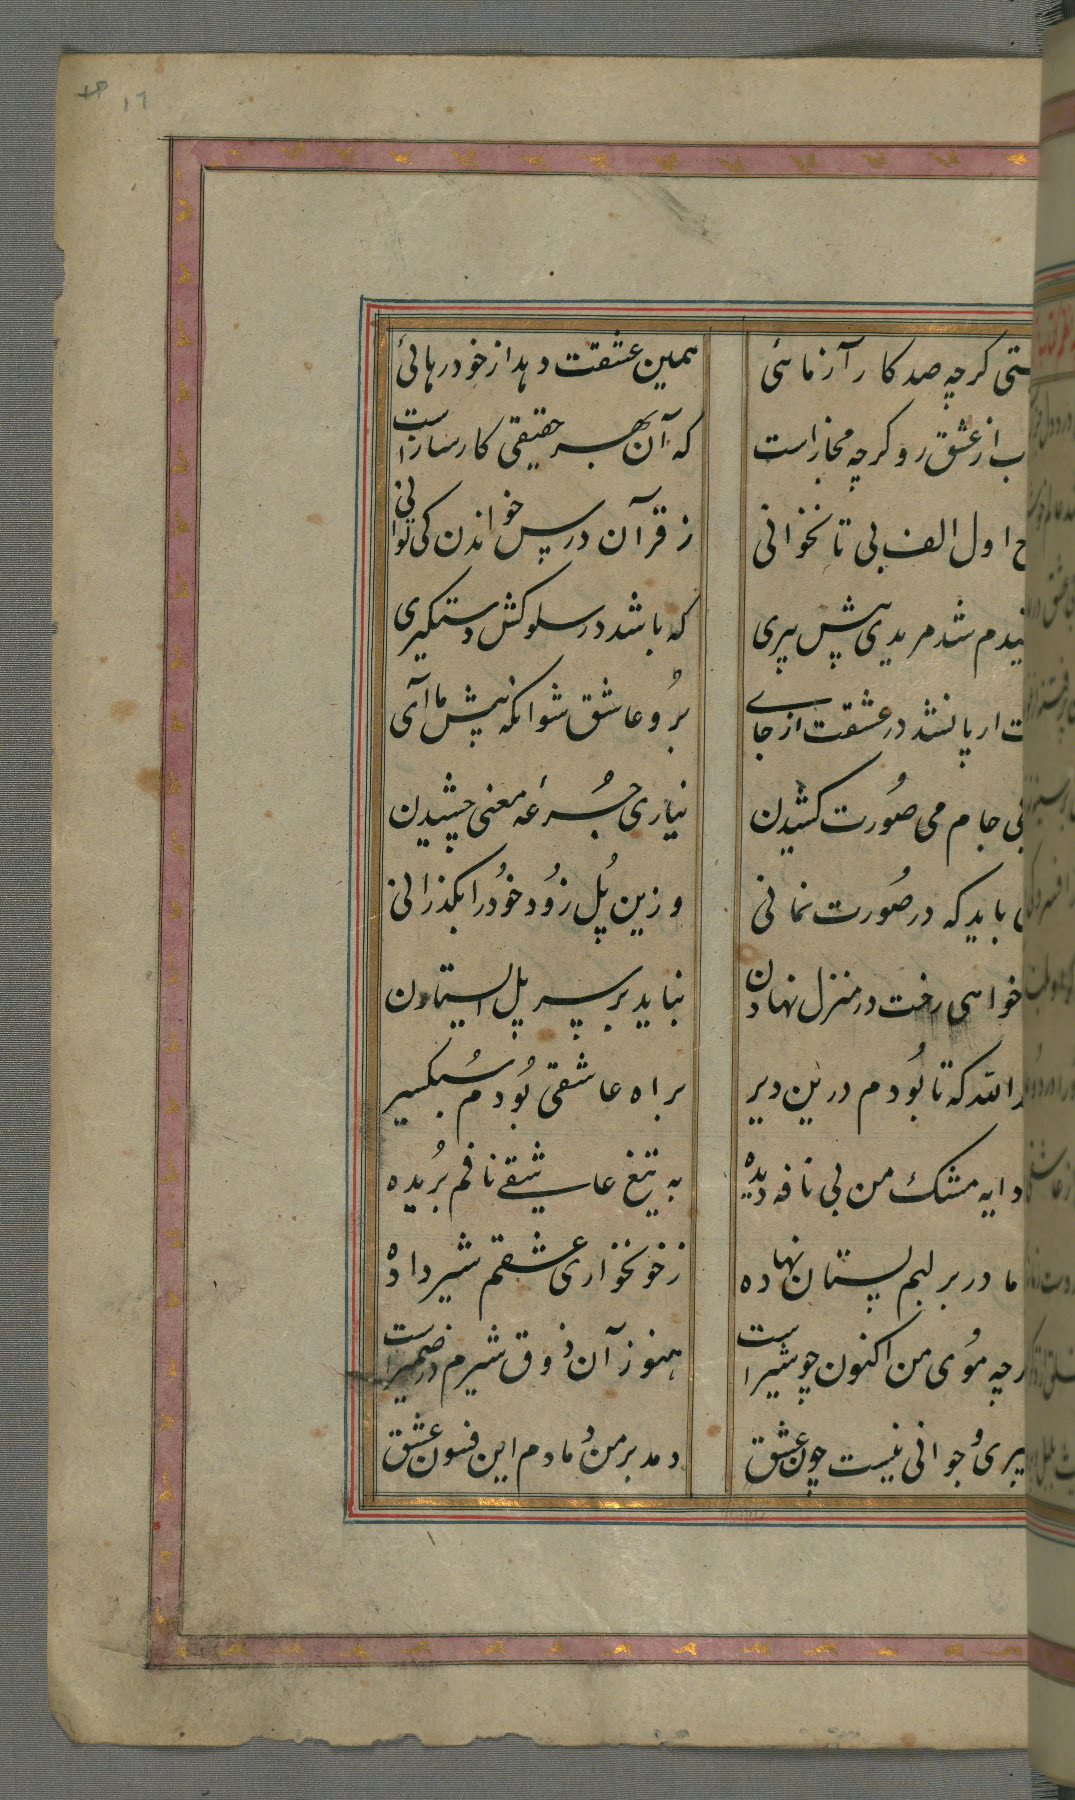 گرچه صد کار آزمائی همین عشقت دهد از خود رهائی
از عشق رو گرچه مجاز است که آن بهر حقیقی کارساز است
اول الف بی تا نخوانی ز قرآن درس خواندن کی توانی
شد مریدی پیش پیری که باشد در سلوکش دستگیری
ار پا نشد در عشقت از جاے برو عاشق شو انکه پیش ما آی
بی جام می صورت کشیدن نیاری جرعهٔ معنی چشیدن
باید که در صورت نمانی وزین پل زود خود را بگذرانی
خواهی رخت در منزل نهادن نباید بر سر پل ایستادن
که تا بودم درین دیر براه عاشقی بودم سبکسیر
دایه مشک من بی نافه دیده به تیغ عاشقی نافم بریده
مادر بر لبم پستان نهاده ز خونخواری عشقم شیر داده
موی من اکنون چو شیر است هنوز آن ذوق شیرم در ضمیر است
پیری و جوانی نیست چون عشق دمد بر من دمادم این فسون عشق
۱۶